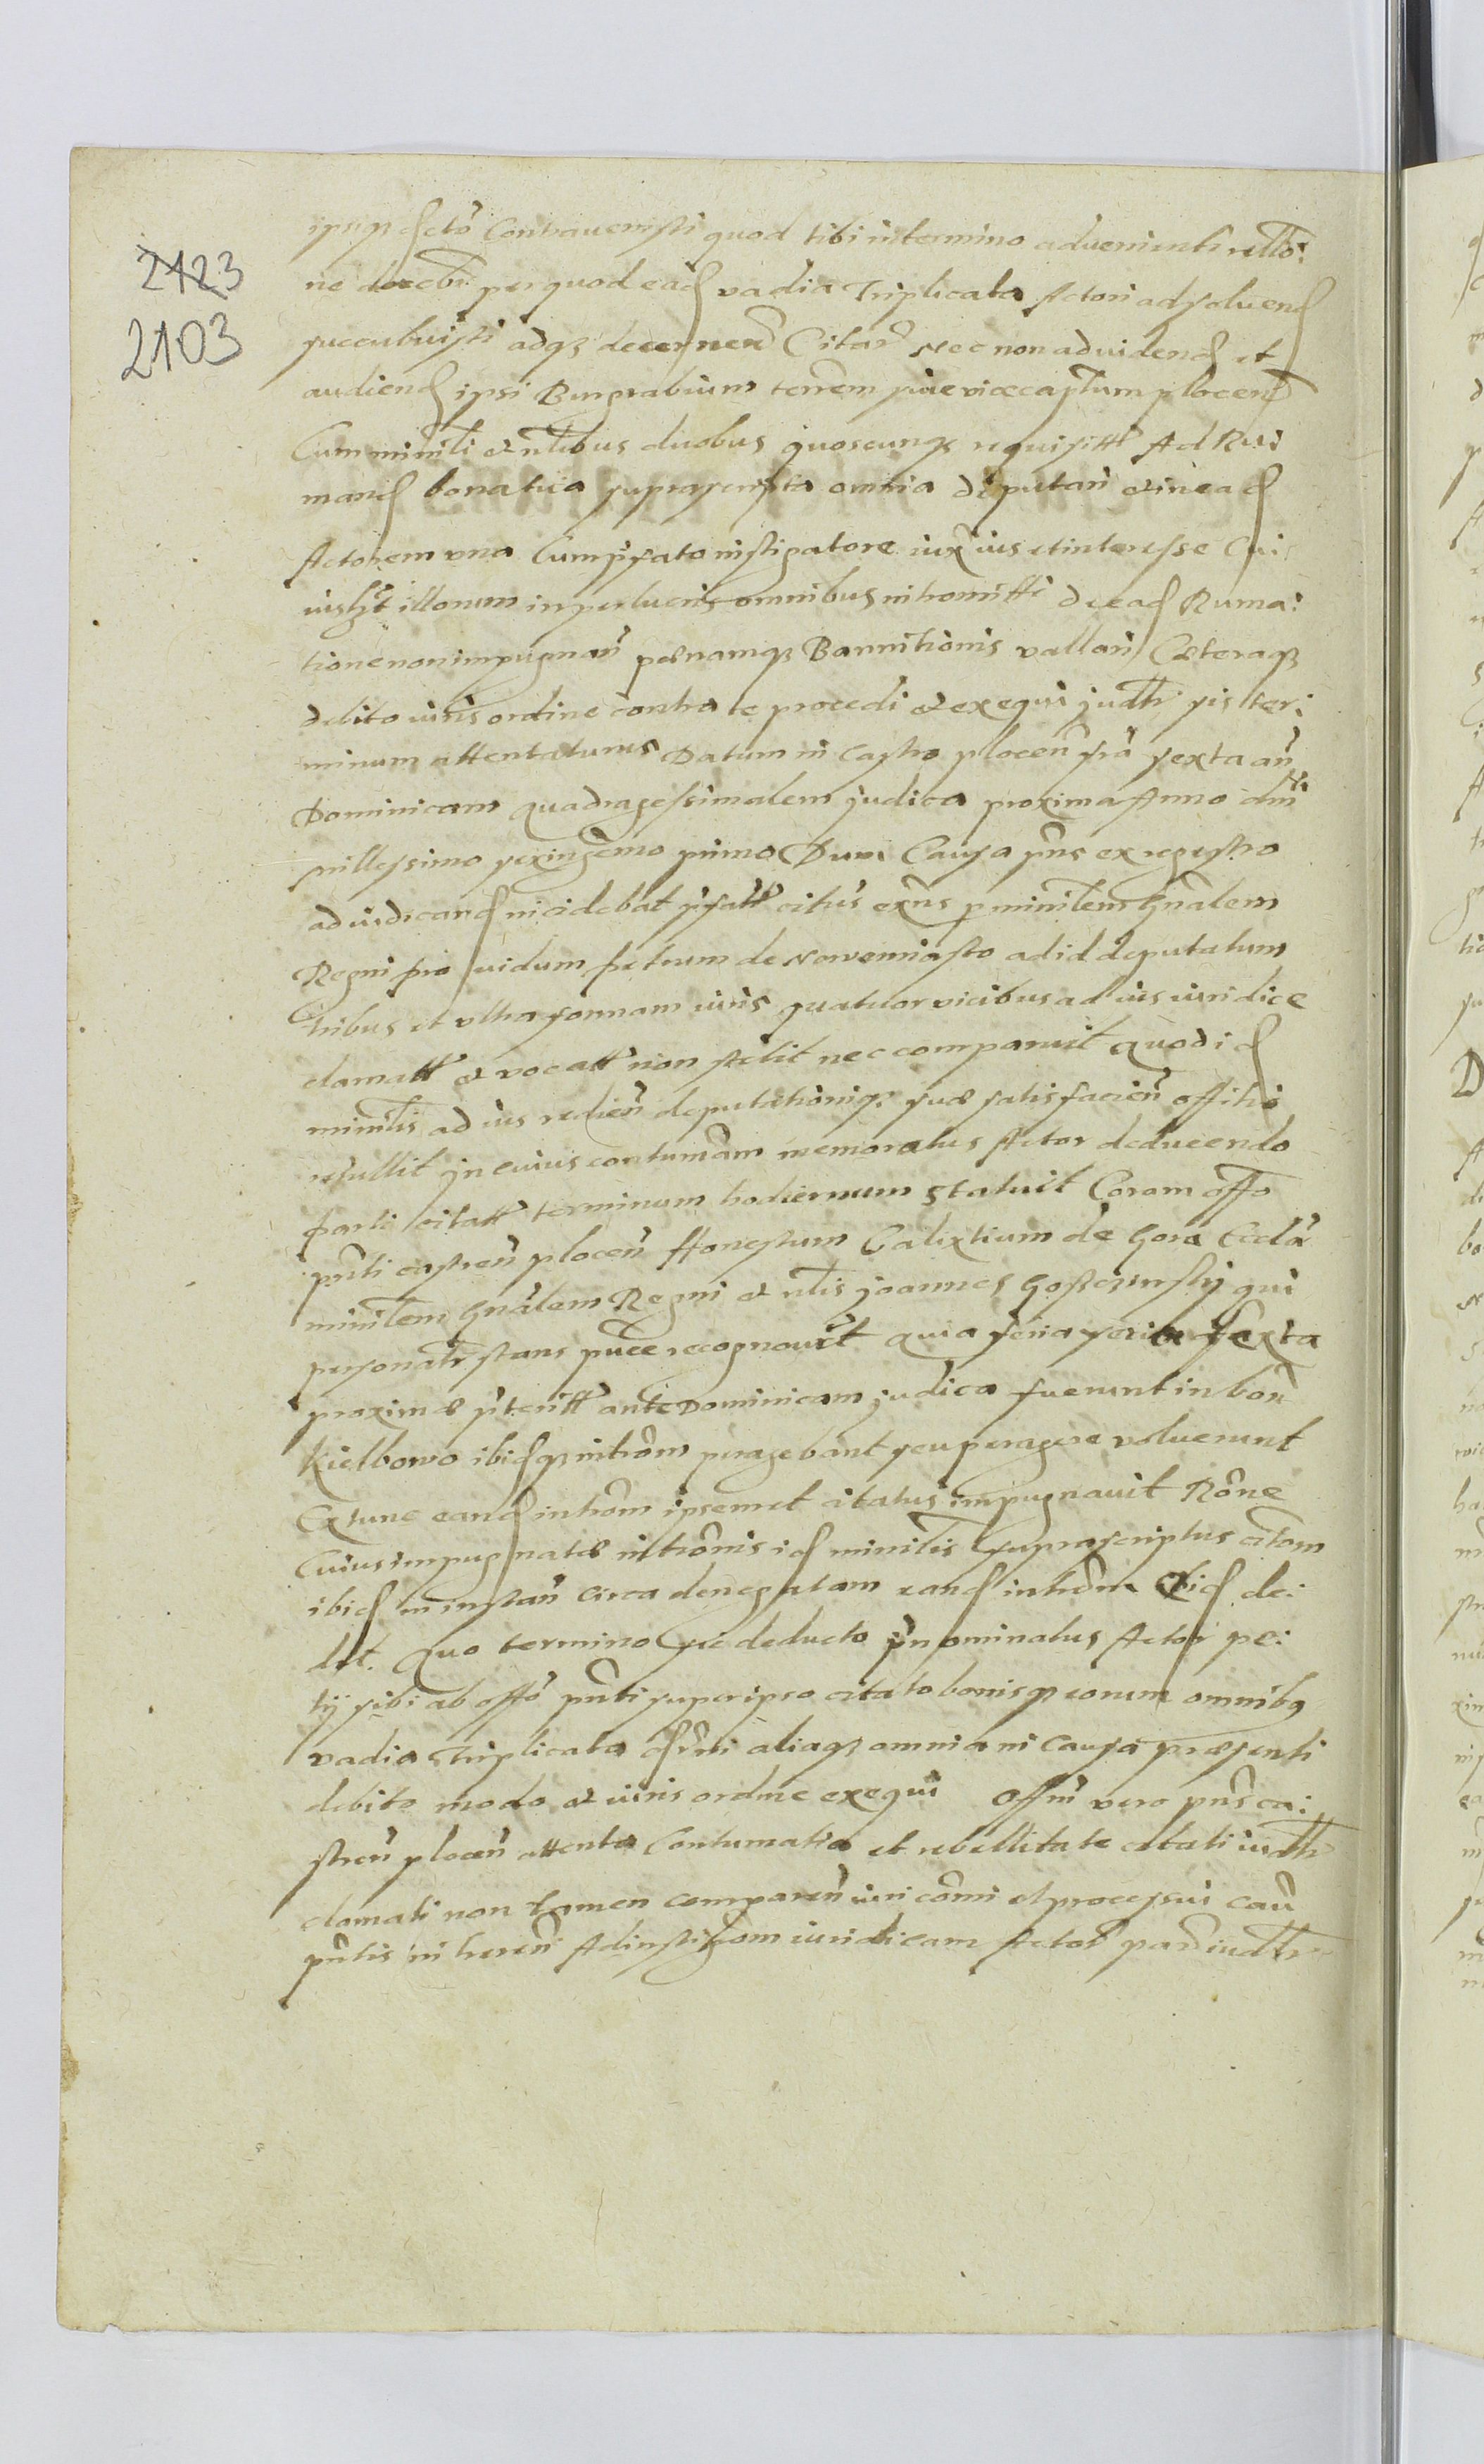 2123
2103
ipsiqz Contrauenisti quod tibi in termino aduenienti
ne docebr per quod ead vadia Triplicata Actori ad soluend
succubuisti adqz decernen Citar Nec non ad videnđ et
audienđ ipsi Burgrabium terrem siue vicecaptum plocen
Cum minrli et nlibus duobus quoscunqz requisitt Ad Rui
manđ bona tua suprascripta omnia deputari et in eađ
Actorem vna Cum pfato instigatore iux ius et interesse Cui
uslzt illorum in pertinens omnibus intromitti de eađ Ruma:
tione non impugnari pœnamqz Bannitionis vallari Cœteraqz
debito iuris ordine contra te procedi et exequi judtr sis ter:
minum attentaturus Datum in Castro plocen fra sexta an
Dominicam quadragessimalem judica proxima Anno dni
millessimo sexingemo primo Dum Causa pns ex regestro
ad iudicanđ incidebat pfatt citus exns p minrlem Gnalem
Regni prouidum petrum de Nowemiasto ad id deputatum
tribus et vltra formam iuris quatuor vicibus ad ius iuridice
clamatt et vocatt non stetit nec comparuit quod iđ
minrlis ad ius redien deputationiqz suæ satisfacien offitio
retullit in cuius contumam memoratus Actor deducendo
parti citatt terminum hodiernum statuit Coram offo
pnti castren plocen Honestum Calixtium de Gora
minrlem Gnalem Regni et nlis Joannes qui
personalr stans puce recognouit quia feria sexta
proximæ pteritt ante Dominicam judica fuerunt in bon
Kielbowo ibiđqz introm peragebant seu peragere voluerunt
Extunc eanđ introm ipsemet citatus impugnauit Rone
Cuius impugnatæ intromis iđ minrlis suprascriptus citom
ibiđ in instan Circa denegatam eanđ introm ibiđ de:
dit. Quo termino sic deducto pnominatus Actor pe:
tÿ sibi ab offo pnti super ipso citato bonisqz eorum omnibq
vadia Triplicata aliaqz omnia in Causa præsenti
debito modo et iuris ordine exequi Offm vero pns ca:
stren plocen attenta Contumatia et rebellitate citati iudtr
clamati non tamen comparen iuri comi et processui caus
pntis in heren Ad instigom iuridicam Actor par iudtr